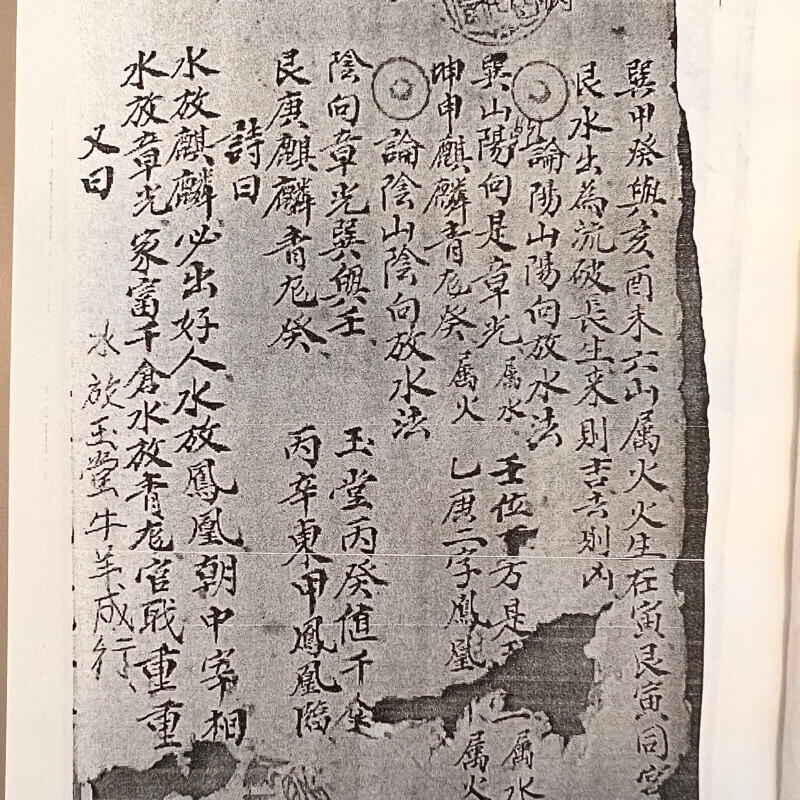 巽甲癸與亥酉未六山属火火生在寅艮寅同宮
艮水出為流破長生来則吉去則凶
論陽山陽向放水法
巽山陽向是章光属水 壬位 方是 属水
坤申麒麟青龙癸属火 乙庚二字鳳凰 属火
論陰山陰向放水法
陰向章光巽與壬 玉堂丙癸值千金
艮庚麒麟青龙癸 丙辛東甲鳳凰臨
詩曰
水放麒麟必出好人水放鳳凰朝中宰相
水放章光家富千倉水放青龙官戢重重
又曰
水放玉堂牛羊成行